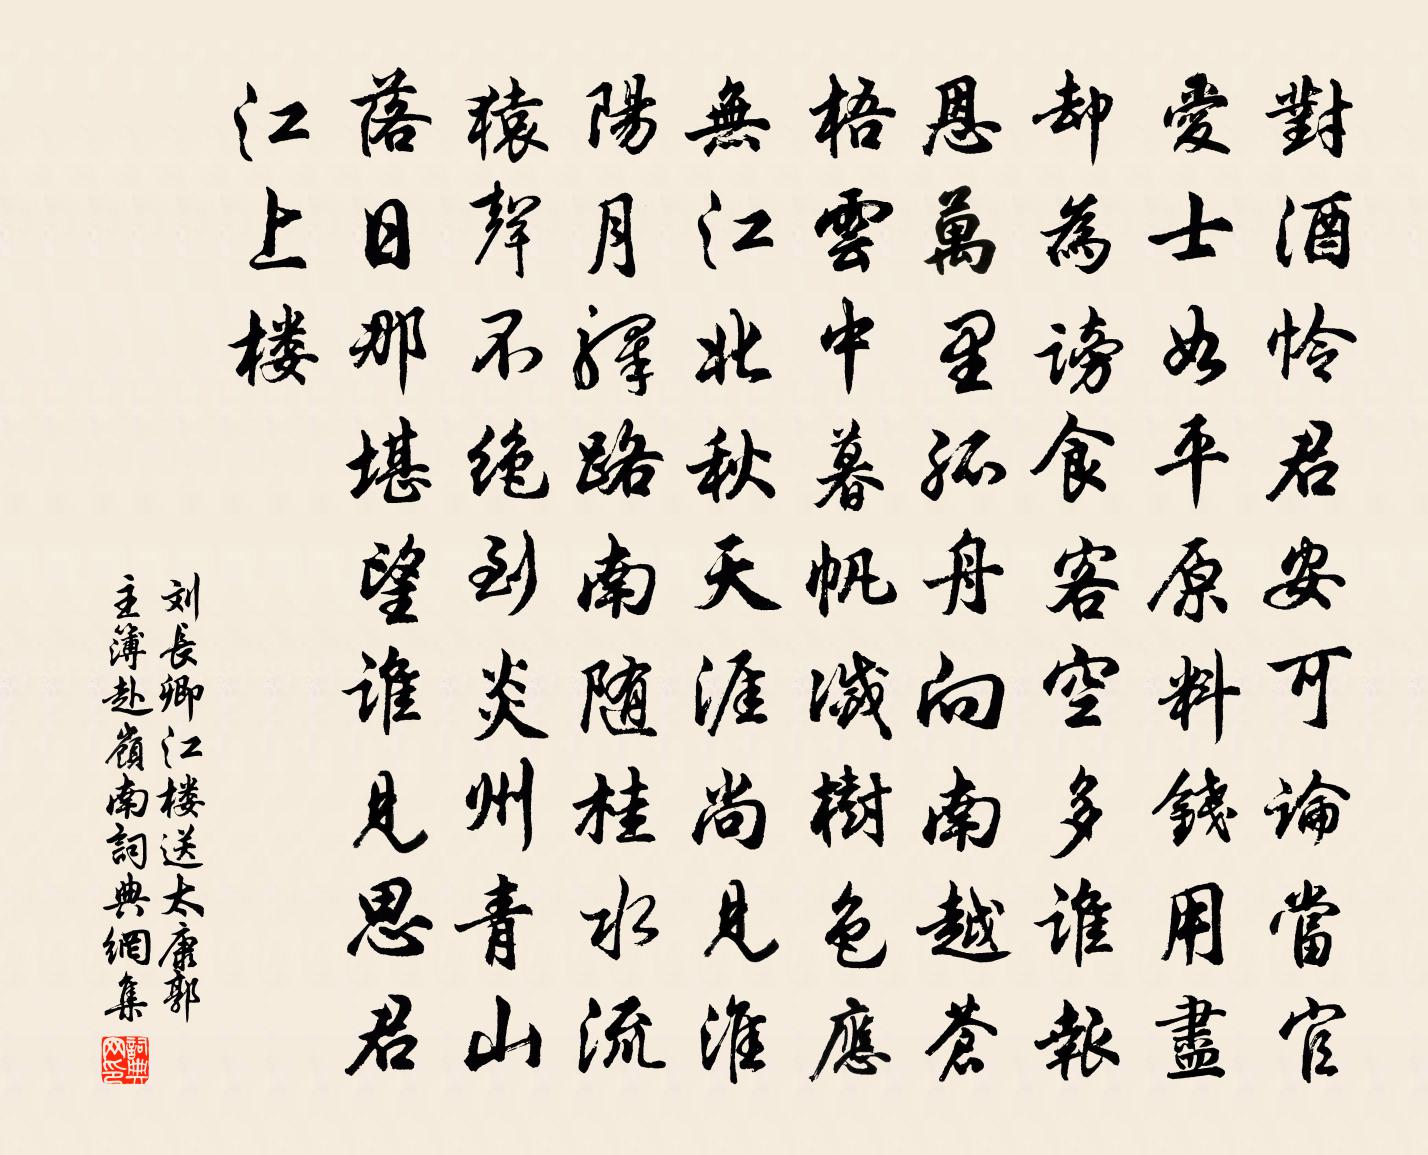 對酒怜君安可論當官
愛士如平原料錢用盡
却為謗食客空多誰報
恩萬里孤舟向南越蒼
梧雲中暮帆滅樹色應
無江北秋天涯尚見淮
陽月驛路南随桂水流
猿聲不绝到炎州青山
落日那堪望誰見思君
江上楼
刘長卿江楼送太康郭
主簿赴嶺南詞典網集
詞典
网印